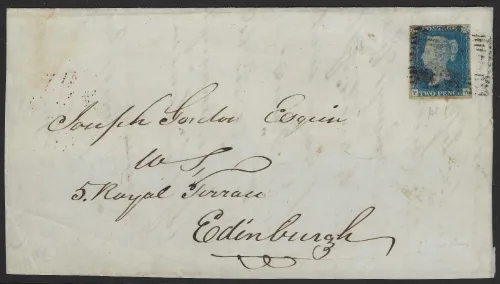 POSTAGE
TWO PENCE
Joseph Gordon Esquire
W S,
5. Royal Terrace
Edinburgh